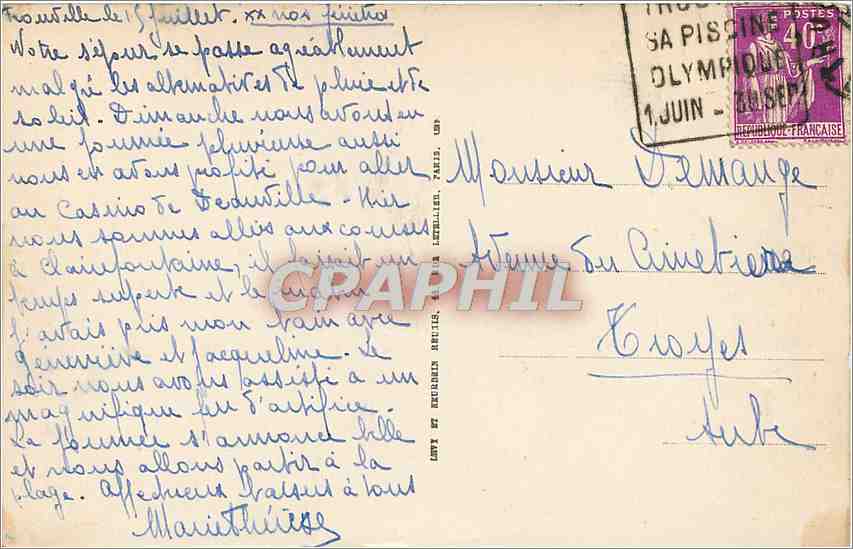 Trouville le 15 juillet. xx nos fenêtres
Notre séjour se passe agréablement
malgré les alternatives de pluie et de
soleil. Dimanche nous avons eu
une journée pluvieuse aussi
nous en avons profité pour aller
au Casino de Deauville. Hier
nous sommes allées aux courses
à Clairefontaine, il faisait un
temps superbe et le matin
j'avais pris mon bain avec
Geneviève et Jacqueline. Le
soir nous avons assisté à un
magnifique feu d'artifice.
La journée s'annonce belle
et nous allons partir à la
plage. Affectueux baisers à tous
Marie Thérèse
LEVY ET NEURDEIN REUNIS, LETELLIER, PARIS, IMP.
SA PISCINE
OLYMPIQUE
1 JUIN - 30 SEPT
POSTES
40c
REPUBLIQUE FRANÇAISE
Monsieur Demange
Avenue du Cimetière
Troyes
Aube
CPAPHIL